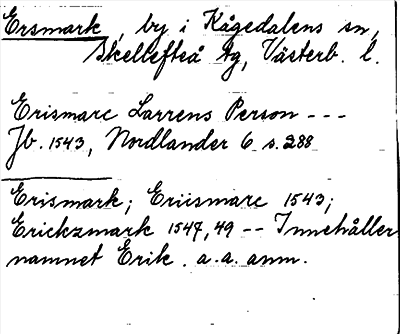 Ersmark, by i Kågedalens sn,
Skellefteå tg, Västerb. l.
Erismarc Larrens Person ---
Jb. 1543, Nordlander 6 s. 288
Erismark; Eriismarc 1543;
Erickzmark 1547, 49 -- Innehåller
namnet Erik. a. a. anm.